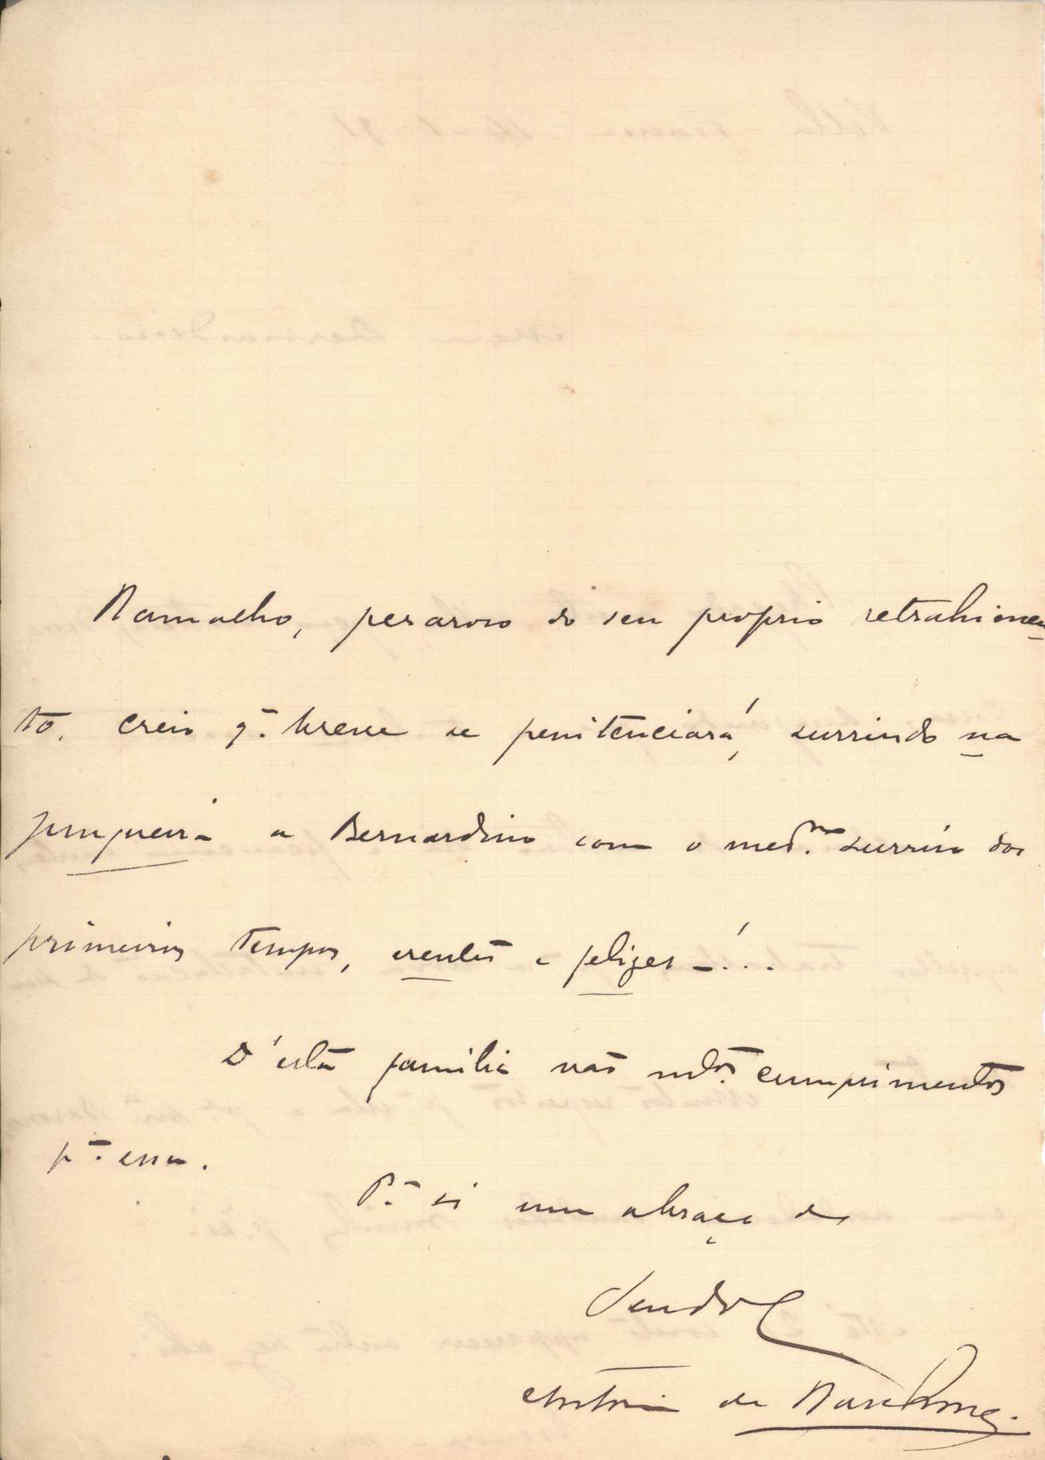 Ramalho, pezaroso do seu proprio retrahimen
to. Creio q. breve se penitenciará, surrindo na
Junqueira a Bernardino com o mes.mo surriso dos
primeiros tempos, crentes e felizes –!...
D'esta familia vão mtos. cumprimentos
pa. essa.
Pa. si um abraço de
Antonio de